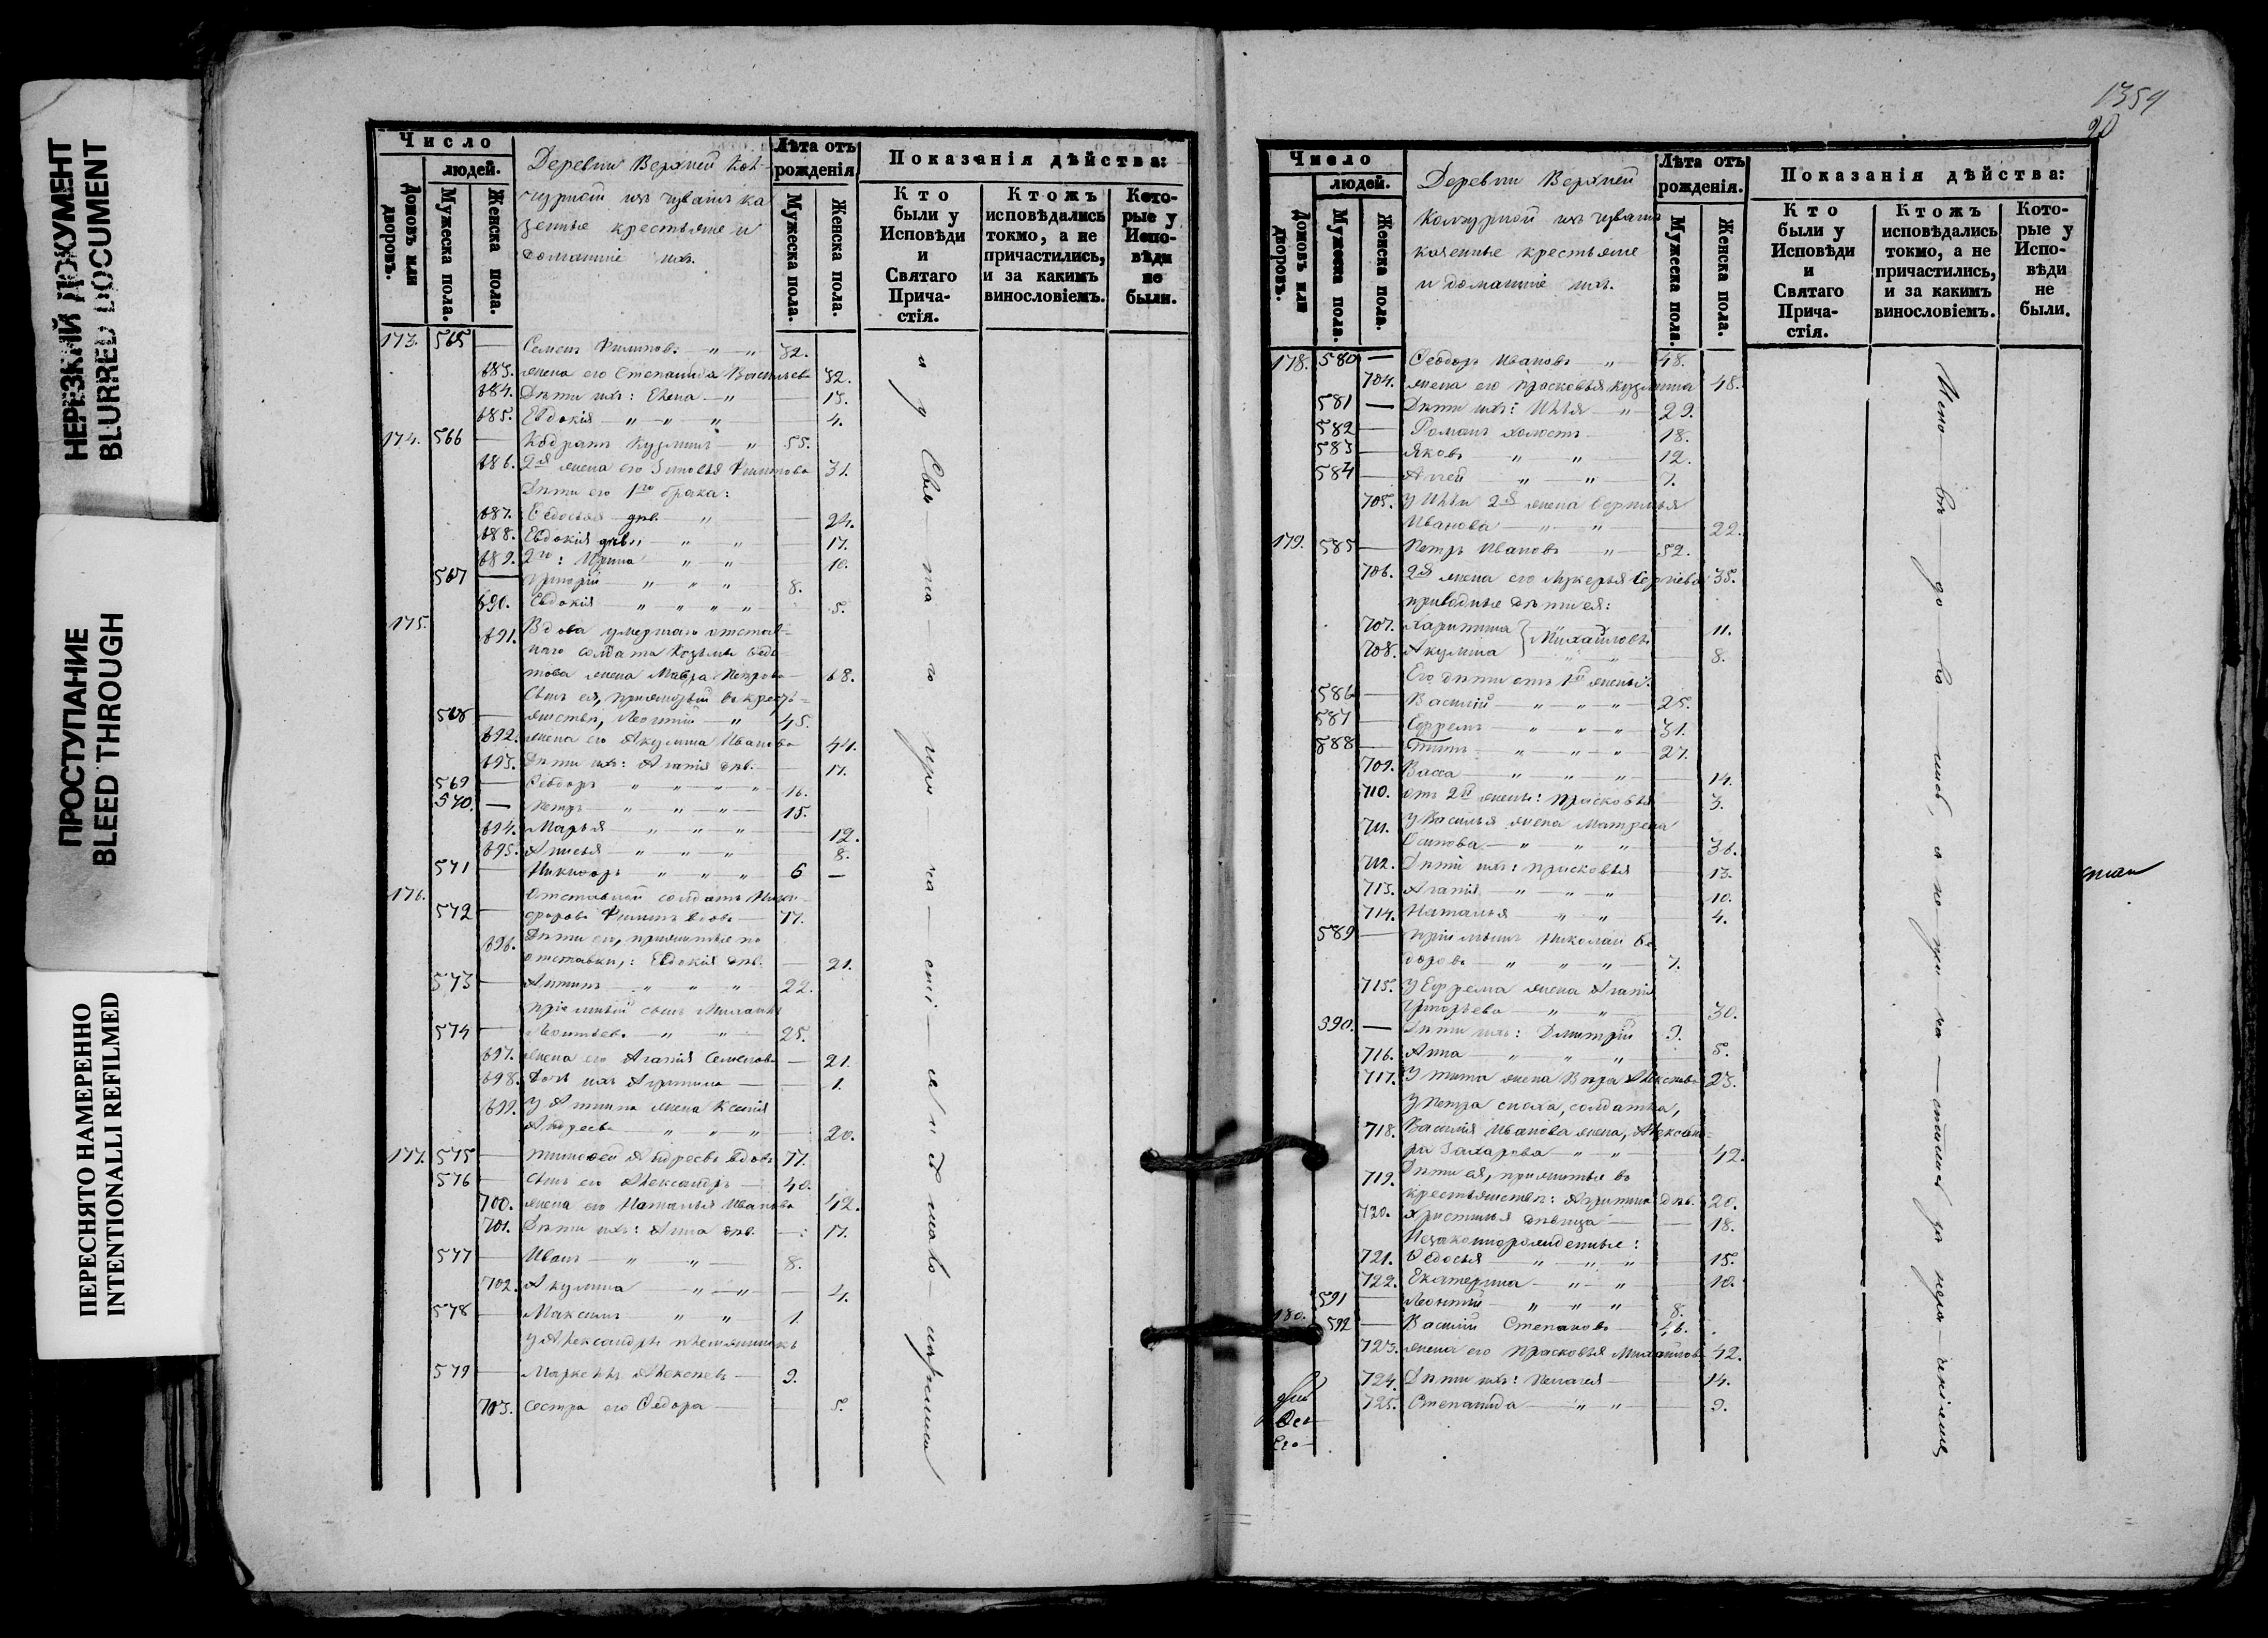 НЕРЕЗКИЙ ДОКУМЕНТ
BLURRED DOCUMENT
ПРОСТУПАНИЕ
BLEED THROUGH
ПЕРЕСНЯТО НАМЕРЕННО
INTENTIONALLI REFILMED
Число
людей.
Домовъ или дворовъ.
Мужеска пола.
Женска пола.
Деревни Верхней
чурной изъ чувашъ ка
зенные крестьяне и
домашніе ихъ.
Лѣта отъ
рожденія
Мужеска пола.
Женска пола.
Показанія дѣйства:
Кто
были у
Исповѣди
и
Святаго
Прича-
стія.
Ктожъ
исповѣдались
токмо, а не
причастились,
и за какимъ
винословіемъ.
Кото-
рые у
Испо-
вѣди
не
были.
173. 565 — Семенъ Филиповъ 32.
683. жена его Степанида Васильева 32.
684. Дѣти ихъ: Елена 13.
685. Евдокія 4.
174. 566 — Кодратъ Кузминъ 55.
686. 2я жена его Зиновья Филипова 31.
Дѣти его 1го брака:
687. Ѳедосья дѣв. 24.
688. Евдокія дѣв. 17.
689. 2го: Ирина 10.
567 — Григорій 8.
690. Евдокія 5.
175. 691. Вдова умершаго отстав-
наго солдата Козьмы Ѳедо-
това жена Мавра Петрова 68.
Сынъ ея, прижитый въ кресть-
568 — янствѣ, Леонтій 45.
692. жена его Акулина Иванова 44.
693. Дѣти ихъ: Агапія дѣв. 17.
569 — Ѳедоръ 16.
570. — Петръ 15.
694. Марья 12.
695. Анисья 8.
571 — Никифоръ 6 —
176. Отставной солдатъ Ники-
572 — форовъ Филипъ вдовъ 77.
696. Дѣти его, прижитые по
отставки,: Евдокія дѣв. 21.
573 — Антипъ 22.
пріемный сынъ Михаилъ
574 — Леонтьевъ 25.
697. жена его Агапія Семенова 21.
698. Дочь ихъ Агрипина 1.
699. У Антипа жена Ксенія
Андреева 20.
177. 575 — Тимофей Андреевъ вдовъ 77.
576 — Сынъ его Александръ 40.
700. жена его Наталья Иванова 42.
701. Дѣти ихъ: Анна дѣв. 17.
577 — Иванъ 8.
702. Акулина 4.
578 — Максимъ 1.
У Александра племянникъ
579 — Маркеллъ Алексѣевъ 9.
703. сестра его Ѳедора 5.
и у Свя та го при ча сті я
1359
20
Число
людей.
Домовъ или дворовъ.
Мужеска пола.
Женска пола.
Деревни Верхней
чурной изъ чувашъ
казенные крестьяне
и домашніе ихъ.
Лѣта отъ
рожденія.
Мужеска пола.
Женска пола.
Показанія дѣйства:
Кто
были у
Исповѣди
и
Святаго
Прича-
стія.
Ктожъ
исповѣдались
токмо, а не
причастились,
и за какимъ
винословіемъ.
Кото-
рые у
Испо-
вѣди
не
были.
178. 580 — Ѳедоръ Ивановъ 48.
704. жена его Прасковья Кузмина 48.
581 — Дѣти ихъ: Илья 29.
582 — Романъ холостъ 18.
583 — Яковъ 12.
584 — 7.
705. У Ильи 2я жена
Иванова 22.
179. 585 — Петръ Ивановъ 52.
706. 2я жена его Лукерья Сергіева 35.
приводные дѣти ея:
707. Харитина } Михайловы 11.
708. Акулина 8.
Его дѣти отъ 1й жены:
586 — Василій 25.
587 — Ефремъ 31.
588 — Титъ 27.
709. Васса 14.
710. отъ 2й жены: Прасковья 3.
711. У Василья жена Матрена
Осипова 36.
712. Дѣти ихъ: Прасковья 13.
713. Агапія 10.
714. Наталья 4.
589 — Пріемышъ Николай Ѳе
доровъ 7.
715. У Ефрема жена Агапія
Григорьева 30.
590. — Дѣти ихъ: Дмитрій 9.
716. Анна 5.
717. У Тита жена Вѣра Алексѣева 23.
У Петра сноха, солдатка,
718. Василія Иванова жена, Александ-
ра Захарова 42.
719. Дѣти ея, прижитые въ
крестьянствѣ: Агрипина дѣв. 20.
720. Христинья дѣвица 18.
Незаконнорожденные:
721. Ѳедосья 15.
722. Екатерина 10.
591 — Леонтій 8.
180. 592 — Василій Степановъ 46.
723. жена его Прасковья Михайлова 42.
724. Дѣти ихъ: Пелагея 14.
725. Степанида 9.